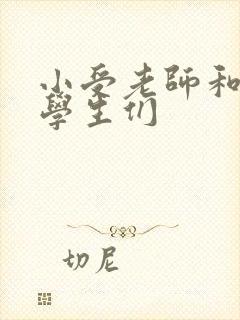 小受老師和
學生们
切尼